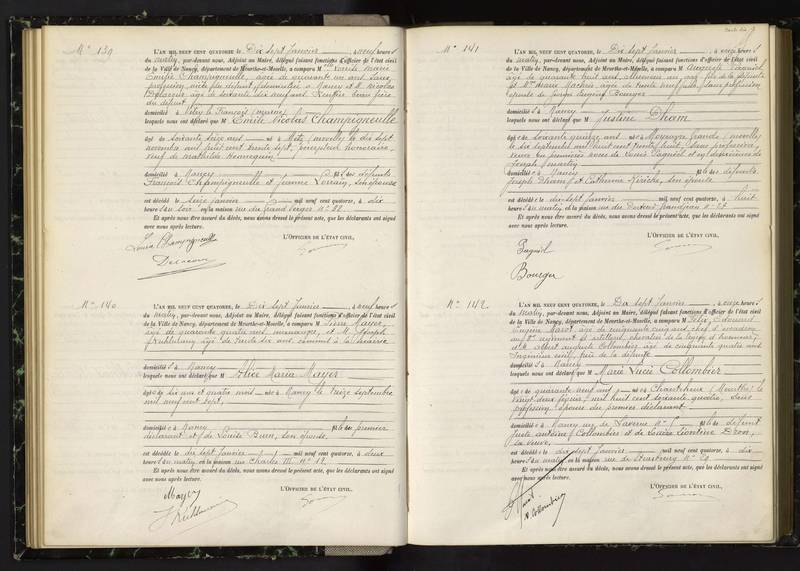 N° 139
L'AN MIL NEUF CENT QUATORZE, le Dix sept Janvier, à neuf heures
du matin, par-devant nous, Adjoint au Maire, délégué faisant fonctions d'officier de l'état civil
de la Ville de Nancy, département de Meurthe-et-Moselle, a comparu M Louise Marie
Emilie Champigneulle, âgée de quarante un ans, sans
profession, nièce du défunt, domiciliée à Nancy et M Nicolas
Delacour, âgé de soixante dix neuf ans, Rentier, beau frère
du défunt
domicilié à Vitry le François (marne)
lesquels nous ont déclaré que M Emile Nicolas Champigneulle
âgé de soixante seize ans né à Metz (moselle) le dix sept
novembre mil huit cent trente sept, comptable honoraire,
veuf de Mathilde Hennequin
domicilié à Nancy fils des défunts
François Champigneulle et Jeanne Lorrain, son épouse
est décédé le seize janvier mil neuf cent quatorze, à dix
heures du soir en sa maison rue du grand Verger n° 22
Et après nous être assuré du décès, nous avons dressé le présent acte, que les déclarants ont signé
avec nous après lecture.
L'OFFICIER DE L'ÉTAT CIVIL,
Louise Champigneulle
Delacour
N° 140
L'AN MIL NEUF CENT QUATORZE, le Dix sept Janvier, à neuf heures
du matin, par-devant nous, Adjoint au Maire, délégué faisant fonctions d'officier de l'état civil
de la Ville de Nancy, département de Meurthe-et-Moselle, a comparu M Pierre Mayer,
âgé de quarante quatre ans, manœuvre, et M Joseph
âgé de trente six ans, commis à la mairie
domiciliés à Nancy
lesquels nous ont déclaré que M Alice Maria Mayer
âgée de six ans et quatre mois née à Nancy le treize septembre
mil neuf cent sept,
domiciliée à Nancy fille du premier
déclarant et de Louise Burn, son épouse
est décédée le dix sept janvier mil neuf cent quatorze, à deux
heures du matin en sa maison rue Charles III n° 12
Et après nous être assuré du décès, nous avons dressé le présent acte, que les déclarants ont signé
avec nous après lecture.
L'OFFICIER DE L'ÉTAT CIVIL,
Mayer
N° 141
L'AN MIL NEUF CENT QUATORZE, le Dix sept Janvier, à neuf heures
du matin, par-devant nous, Adjoint au Maire, délégué faisant fonctions d'officier de l'état civil
de la Ville de Nancy, département de Meurthe-et-Moselle, a comparu M Auguste Pagniol
âgé de quarante huit ans, fils de la défunte
et Marie âgée de trente neuf ans, sans profession
épouse de Bourger
domiciliés à Nancy
lesquels nous ont déclaré que M Justine Dham
âgée de soixante quinze ans née à Moyeuvre Grande (moselle)
le six septembre mil huit cent trente huit, sans profession,
veuve en premières noces de Louis Pagniol et en deuxièmes de
Joseph Martin
domiciliée à Nancy fille des défunts
Joseph Dham et Catherine son épouse
est décédée le dix-sept janvier mil neuf cent quatorze, à huit
heures du matin en sa maison rue du Docteur Grandjean n° 27
Et après nous être assuré du décès, nous avons dressé le présent acte, que les déclarants ont signé
avec nous après lecture.
L'OFFICIER DE L'ÉTAT CIVIL,
Pagniol
Bourger
N° 142
L'AN MIL NEUF CENT QUATORZE, le Dix sept Janvier, à onze heures
du matin, par-devant nous, Adjoint au Maire, délégué faisant fonctions d'officier de l'état civil
de la Ville de Nancy, département de Meurthe-et-Moselle, a comparu M Félix, Edouard
Eugène âgé de cinquante cinq ans, chef d'escadron
au 8e régiment d'artillerie, chevalier de la légion d'honneur,
et M Albert auguste Collombier, âgé de cinquante quatre ans
Ingénieur civil, frère de la défunte
domiciliés à Nancy
lesquels nous ont déclaré que M Marie Lucie Collombier
âgée de quarante neuf ans née à Chanteheux (Meurthe) le
vingt deux février mil huit cent soixante quatre, sans
profession, épouse du premier déclarant
domiciliée à Nancy rue de Saverne n° 1 fille de défunt
Juste antoine Collombier et de Louise Léontine Dron,
sa veuve,
est décédée le dix-sept janvier mil neuf cent quatorze, à dix
heures du matin en sa maison rue de Strasbourg n° 29
Et après nous être assuré du décès, nous avons dressé le présent acte, que les déclarants ont signé
avec nous après lecture.
L'OFFICIER DE L'ÉTAT CIVIL,
A. Collombier